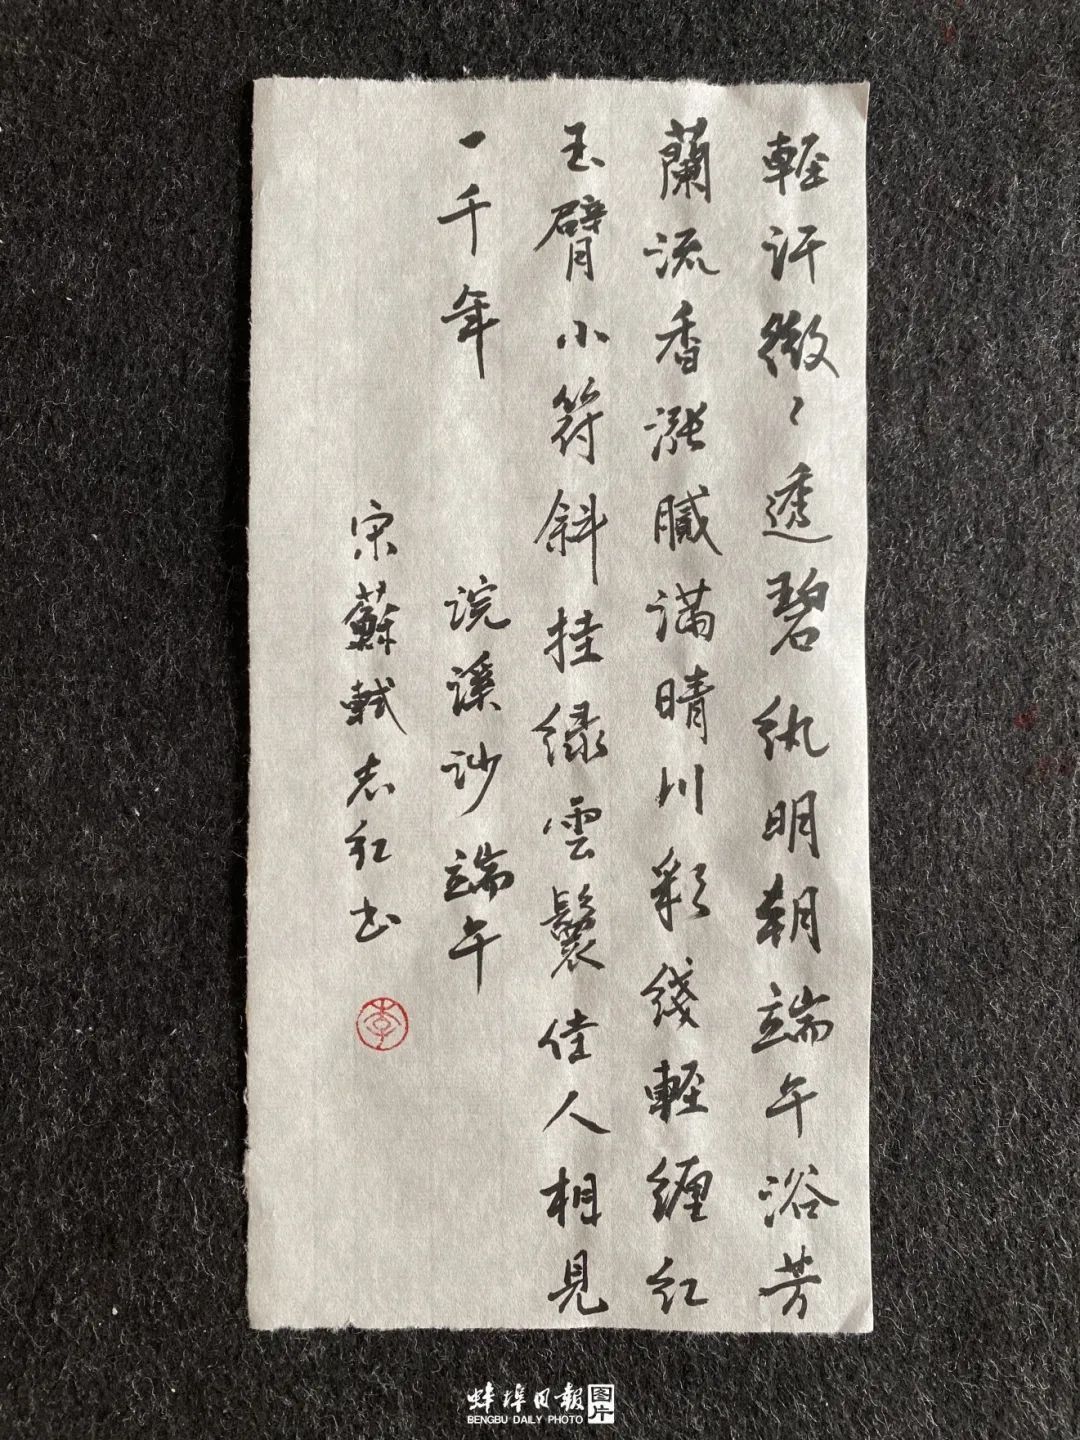 輕汗微〻透碧紈明朝端午浴芳
蘭流香漲膩满晴川彩綫輕缠红
玉臂小符斜挂绿雲鬟佳人相見
一千年
浣溪沙端午
宋蘇軾志红书
李
蚌埠日報 图片
BENGBU DAILY PHOTO